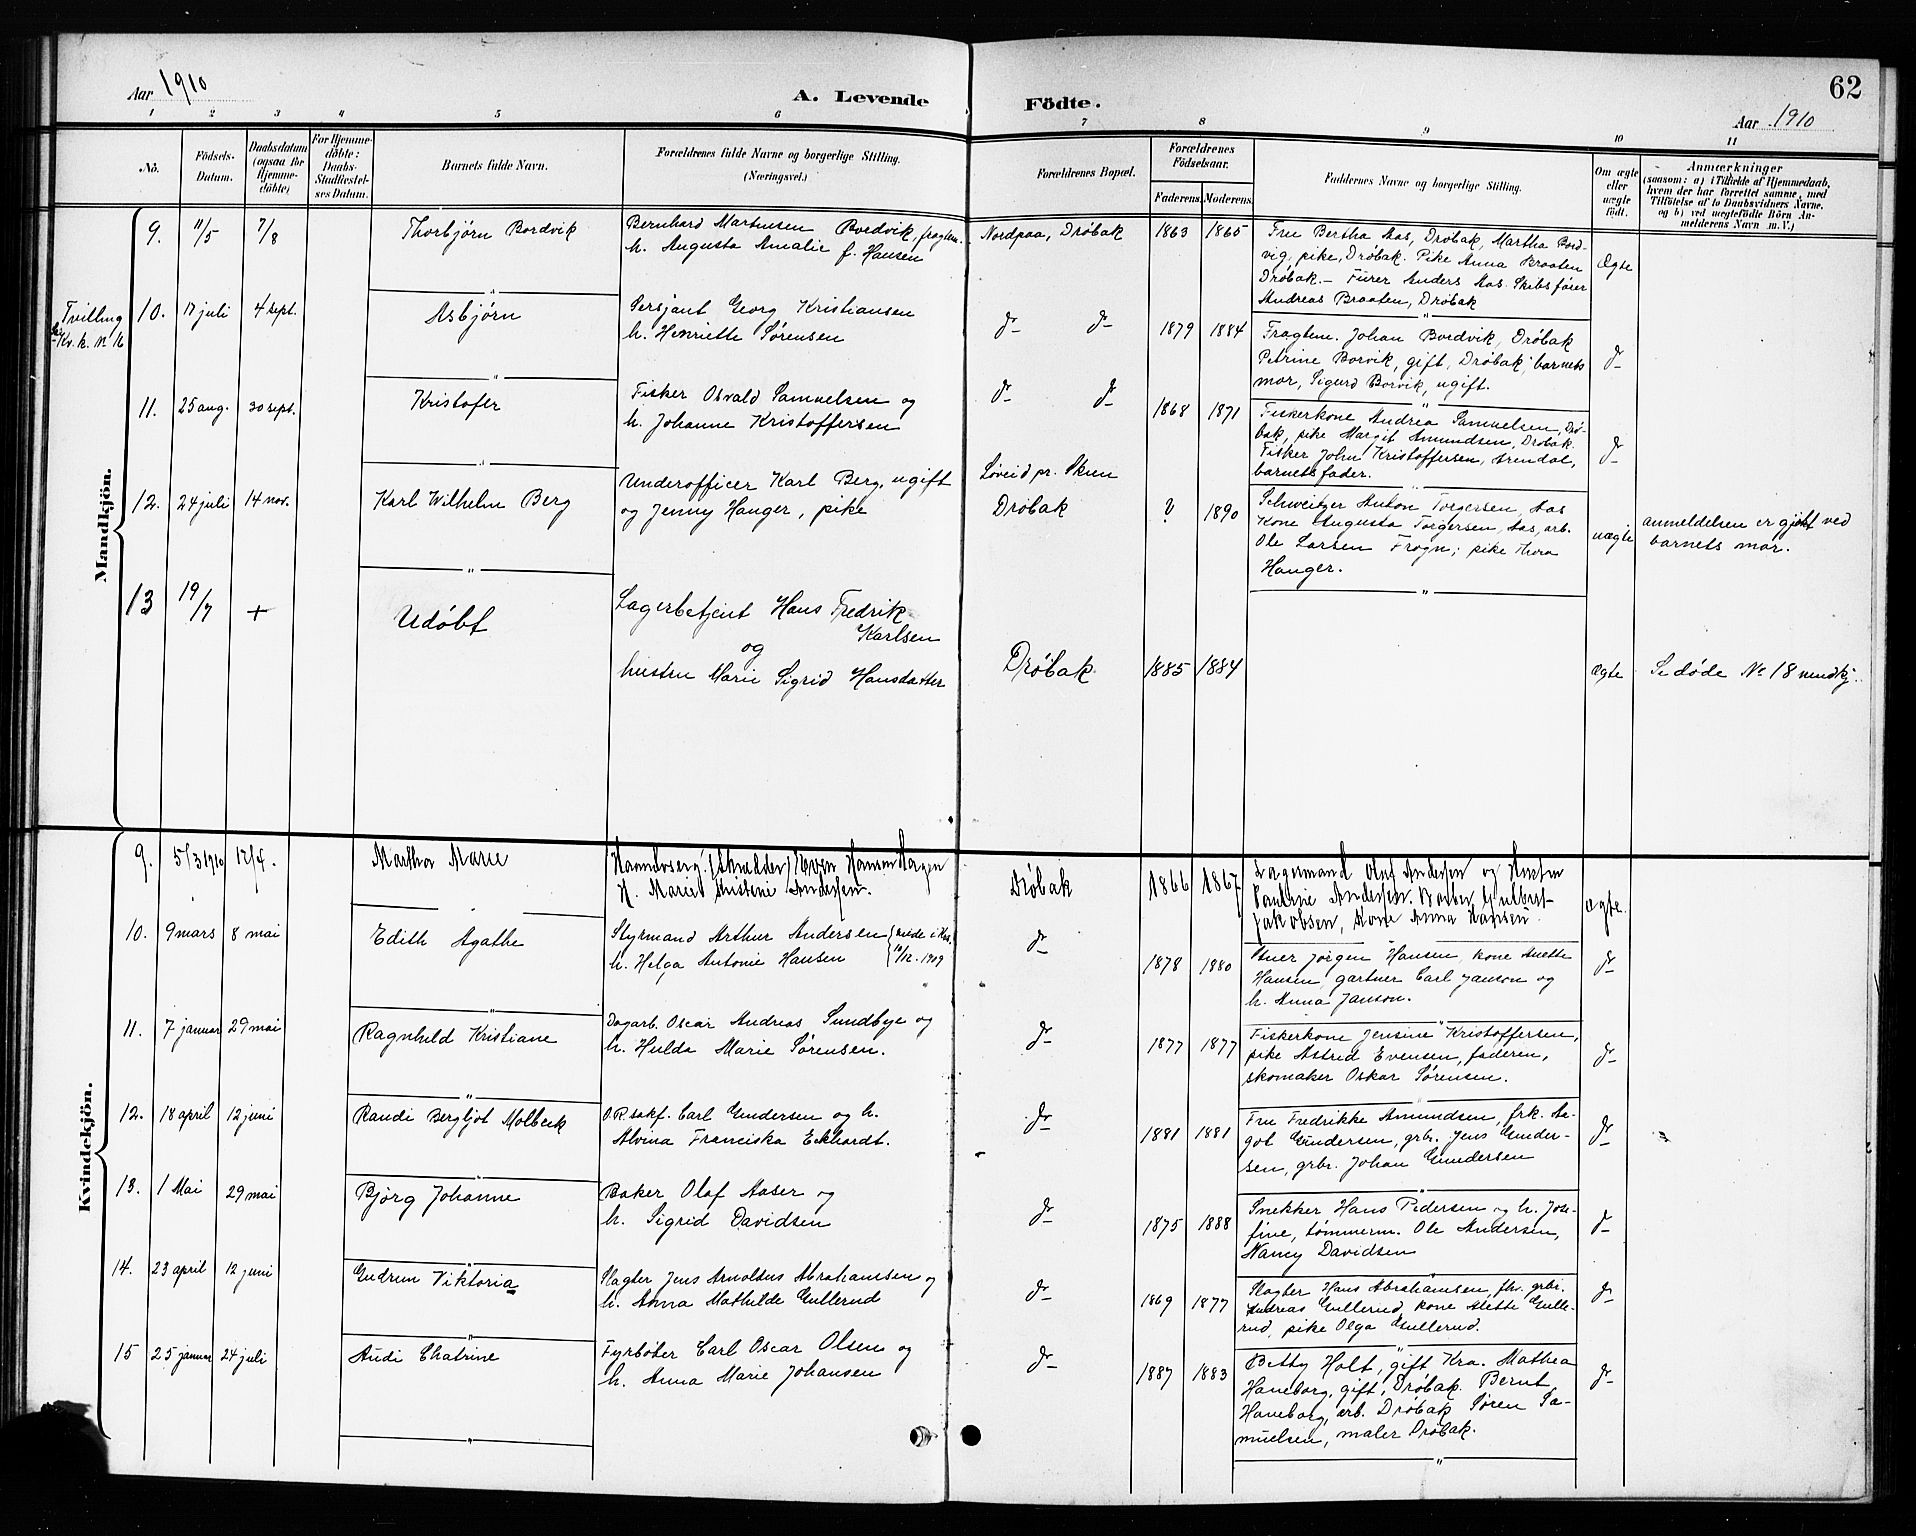 Aar 1910
A. Levende
Födte.
62
Aar 1910
1 2 3 4 5 6 7 8 9 10 11
No.
Födsels-
Datum.
Daabsdatum
(ogsaa for
Hjemme-
döbte)
For Hjemme-
döbte:
Daabs-
Stadfæstel-
ses Datum.
Barnets fulde Navn.
Forældrenes fulde Navne og borgerlige Stilling.
(Næringsvei.)
Forældrenes Bopæl.
Forældrenes
Födselsaar.
Faderens.
Moderens.
Faddernes Navne og borgerlige Stilling.
Om ægte
eller
uægte
födt.
Anmærkninger
(saasom: a) i Tilfælde af Hjemmedaab,
hvem der har forrettet samme, med
Tilföielse af to Daabsvidners Navne,
og b) ved uægtefödte Börn An-
melderens Navn m. V.)
Mandkjön.
9. 11/5 7/8 Thorbjörn Bordvik
Bernhard Martinsen Bordvik, fragtem.
h. Augusta Amalie f. Hansen
Nordpaa, Dröbak 1863 1865
Fru Bertha Aas, Dröbak, Martha Bord-
vig, pike, Dröbak. Pike Anna Braaten
Dröbak. – Fürer Anders Aas. Skibsförer
Andreas Braaten, Dröbak
Ægte
Tvilling
10. 17 juli 4 sept. Asbjörn
Sersjant Georg Kristiansen
h. Henriette Sörensen
do do 1879 1884
Fragtem. Johan Bordvik, Dröbak
Petrine Borvik, gift, Dröbak, barnets
mor, Sigurd Borvik, ugift.
do
11. 25 aug. 30 sept. Kristofer
Fisker Osvald Samuelsen og
h. Johanne Kristoffersen
do do 1868 1871
Fiskerkone Andrea Samuelsen, Drö-
bak, pike Margit Amundsen, Dröbak
Fisker John Kristoffersen, Arendal,
barnets fader.
do
12. 24 juli 14 nov. Karl Wilhelm Berg
Underofficer Karl Berg, ugift
og Jenny Hanger, pike
Löveid pr. Skien
Dröbak ? 1890
Schweitzer Anton Torgersen, Aas
Kone Augusta Torgersen, Aas, arb.
Ole Larsen Frogn; pike Thora
Hanger.
uægte
anmeldelsen er gjort ved
barnets mor.
13 19/7 + Udöbt
Lagerbetjent Hans Fredrik
Karlsen
og
hustru Marie Sigrid Hansdatter
Dröbak. 1885 1884
ægte
Se döde No 18 mndkj.
Kvindekjön.
9. 5/3 1910 17/4. Martha Marie
(Skredder) Even Hansen
H. Marie Kristine Andersen.
Dröbak 1866 1867
Lagermand Olaf Andersen og Hustru
Pauline Andersen. Barber Gulbert
Jakobsen, Kone Anna Hansen
ægte.
10. 9 mars 8 mai Edith Agathe
Styrmand Arthur Andersen
h. Helga Antonie Hansen
10/12. 1909
do 1878 1880
Jörgen Hansen, kone Anette
Hansen, gartner Carl Janson og
h. Anna Janson.
do
11. 7 januar 29 mai Ragnhild Kristiane
Dagarb. Oscar Andreas Sundbye og
h. Hulda Marie Sörensen.
do 1877 1877
Fiskerkone Jensine Kristoffersen,
pike Astrid Evensen, faderen,
skomaker Oskar Sörensen.
do
12. 18 april 12 juni Randi Bergljot Molbeck
O.R.sakf. Carl Gundersen og h.
Alvina Franciska Eckhardt.
do 1881 1881
Fru Fredrikke Amundsen, frk. Aa-
got Gundersen, grbr. Jens Gunder-
sen, grbr. Johan Gundersen
do
13. 1 Mai 29 mai Björg Johanne
Baker Olaf Aaser og
h. Sigrid Davidsen
do 1875 1888
Snekker Hans Pedersen og h. Jose-
fine, tömmerm. Ole Andersen,
Nancy Davidsen
do
14. 23 april 12 juni Gudrun Viktoria
Slagter Jens Arnoldus Abrahamsen og
h. Anna Mathilde Gullerud
do 1869 1877
Slagter Hans Abrahamsen, fhv. grbr.
Andreas Gullerud, kone Mette Gulle-
rud, pike Olga Gullerud.
do
15 25 januar 24 juli Audi Chatrine
Fyrböter Carl Oscar Olsen og
h. Anna Marie Johansen
do 1887 1883
Betty Holt, gift Kra. Mathea
Haneborg, gift, Dröbak. Bernt
Haneborg, arb. Dröbak Sören Sa-
muelsen, maler Dröbak.
do